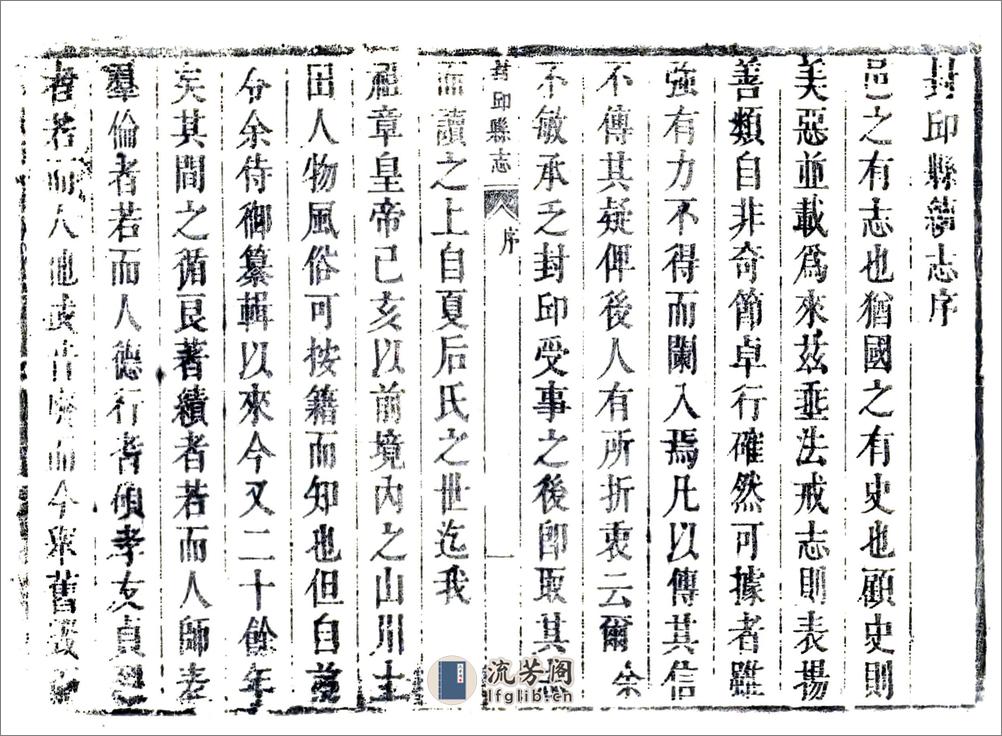 封邱縣續志序
邑之有志也猶國之有史也顧史則
美惡並載爲來茲垂法戒志則表揚
善類自非奇節卓行確然可據者雖
強有力不得而闌入焉凡以傳其信
不傳其疑俾後人有所折衷云爾余
不敏承乏封邱受事之後卽取其
封邱縣志 序 一
而讀之上自夏后氏之世迄我
章皇帝己亥以前境內之山川土
田人物風俗可按籍而知也但自
余侍御纂輯以來今又二十餘年
矣其間之循良著績者若而人師表
羣倫者若而人德行耆碩孝友貞
者若而人他或昔廢而今舉舊
流芳阁
lfglib.cn